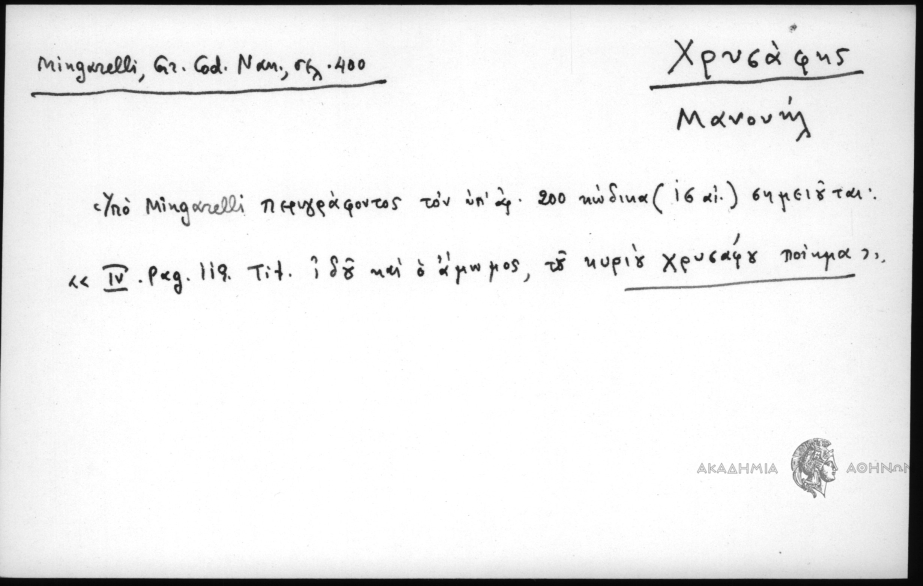 Mingarelli, Gr. Cod. Nan., σελ. 400
Χρυσάφης
Μανουήλ
Ὑπὸ Mingarelli περιγράφοντος τὸν ὑπ' ἀρ. 200 κώδικα (ις αἰ.) σημειοῦται:
«IV. Pag. 119. Tit. ἰδοῦ καὶ ὁ ἄμωμος, τοῦ κυρίου χρυσάφου ποίημα».
ΑΚΑΔΗΜΙΑ ΑΘΗΝΩΝ